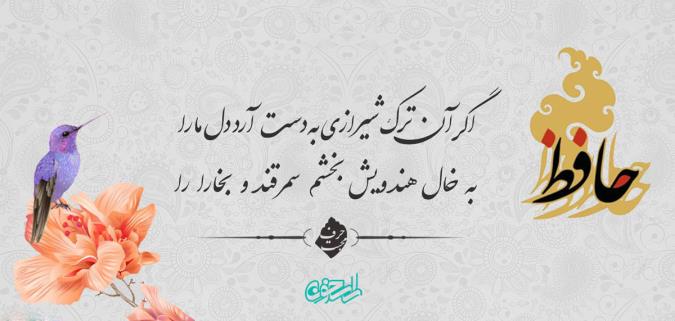 حافظ
اگر آن ترک شیرازی به دست آرد دل ما را
به خال هندویش بخشم سمرقند و بخارا را